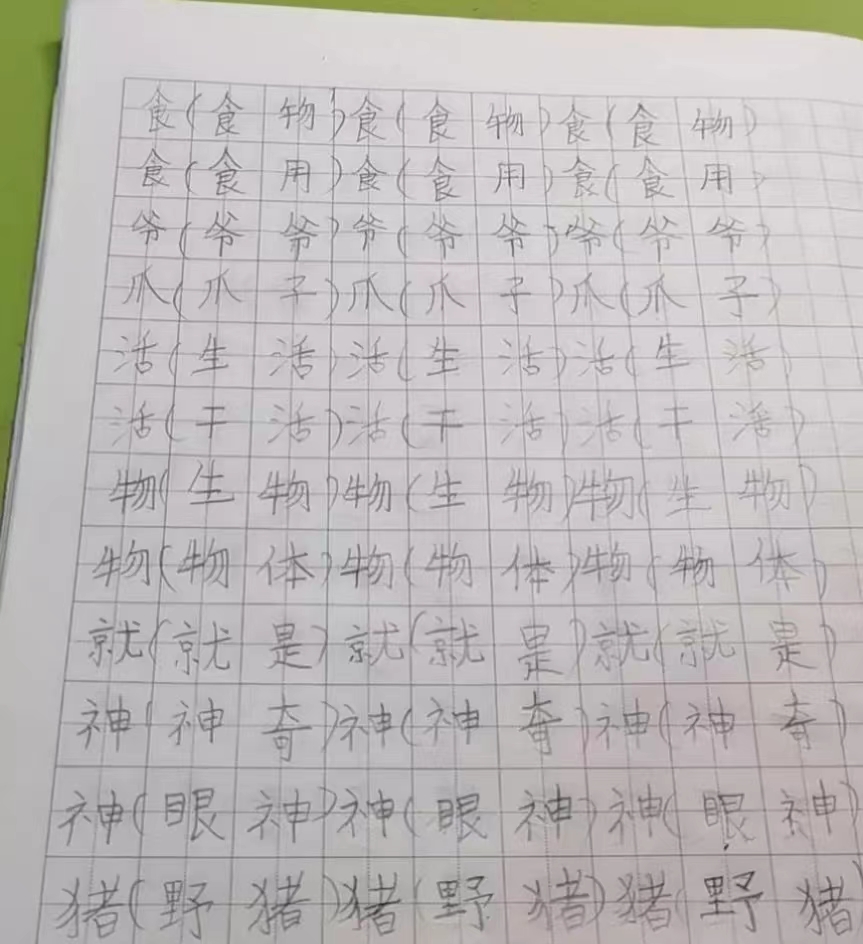 食(食物)食(食物)食(食物)
食(食用)食(食用)食(食用)
爷(爷爷)爷(爷爷)爷(爷爷)
爪(爪子)爪(爪子)爪(爪子)
活(生活)活(生活)活(生活)
活(干活)活(干活)活(干活)
物(生物)物(生物)物(生物)
物(物体)物(物体)物(物体)
就(就是)就(就是)就(就是)
神(神奇)神(神奇)神(神奇)
神(眼神)神(眼神)神(眼神)
猪(野猪)猪(野猪)猪(野猪